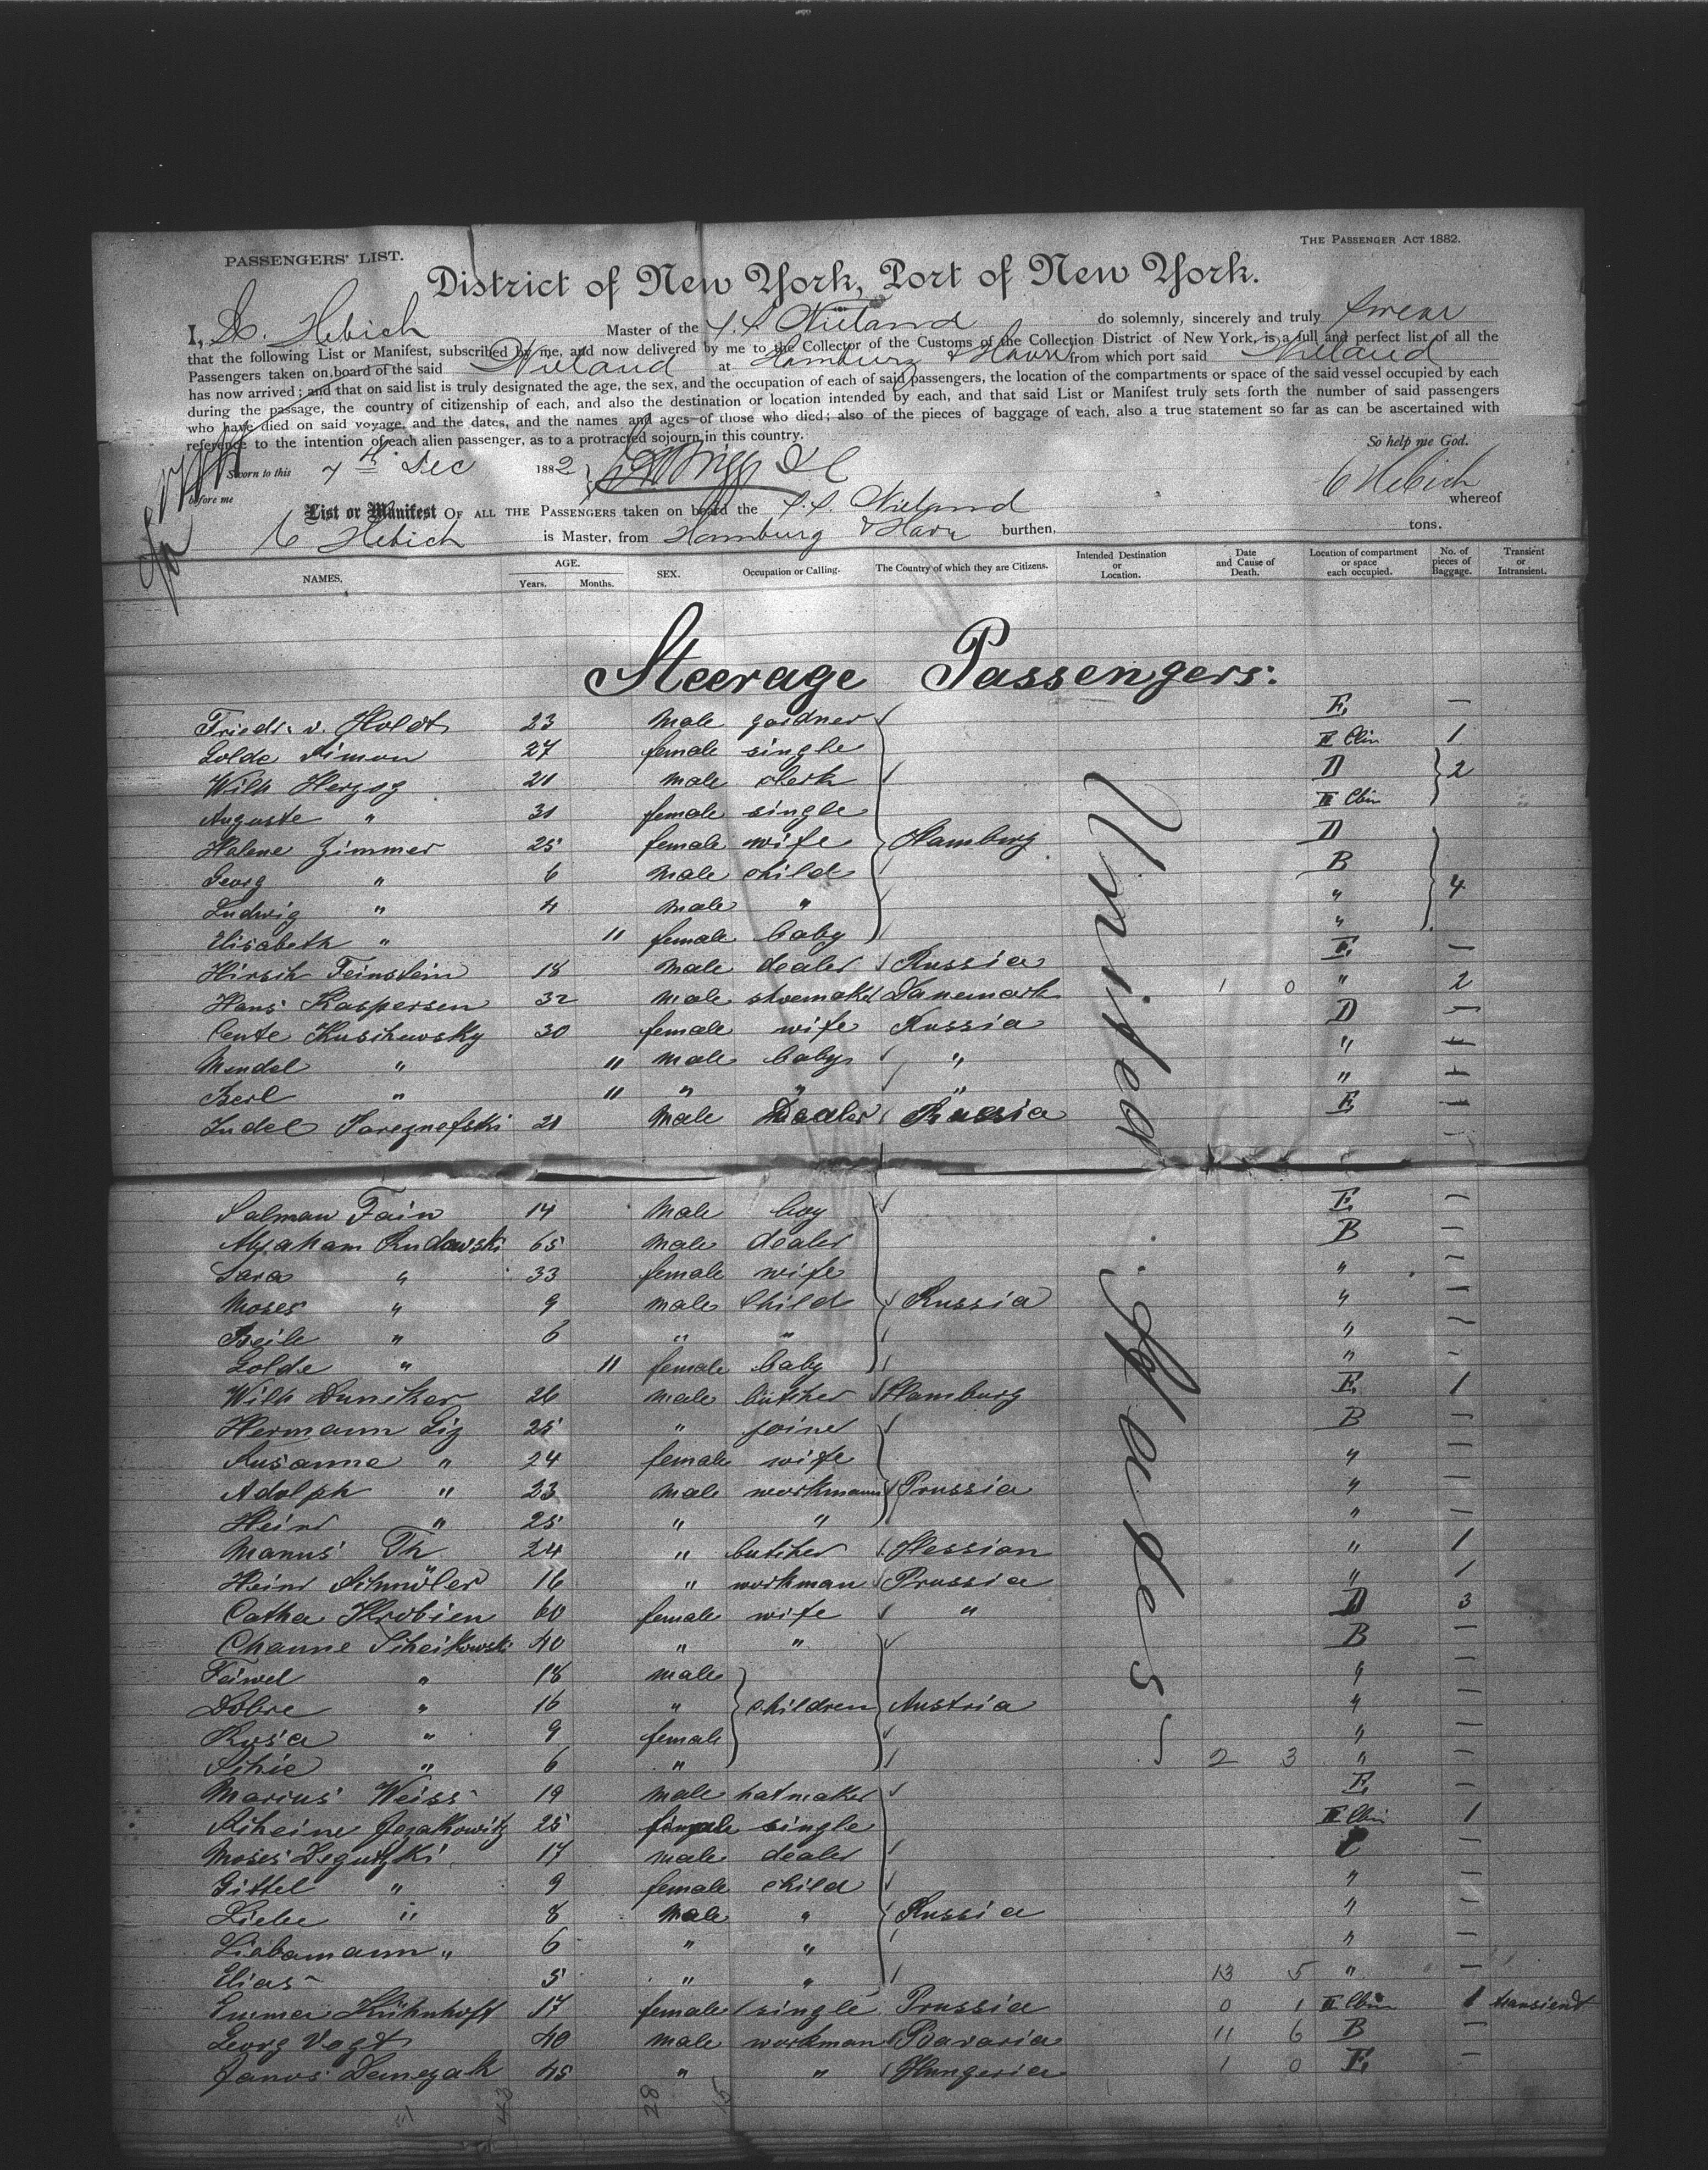 PASSENGERS' LIST.
THE PASSENGER ACT 1882.
District of New York, Port of New York.
I, Hebich Master of the S.S. Wieland do solemnly, sincerely and truly swear
that the following List or Manifest, subscribed by me, and now delivered by me to the Collector of the Customs of the Collection District of New York, is a full and perfect list of all the
Passengers taken on board of the said Wieland at Hamburg & Havre from which port said Wieland
has now arrived; and that on said list is truly designated the age, the sex, and the occupation of each of said passengers, the location of the compartments or space of the said vessel occupied by each
during the passage, the country of citizenship of each, and also the destination or location intended by each, and that said List or Manifest truly sets forth the number of said passengers
who have died on said voyage, and the dates, and the names and ages of those who died; also of the pieces of baggage of each, also a true statement so far as can be ascertained with
reference to the intention of each alien passenger, as to a protracted sojourn in this country.
So help me God.
Sworn to this 7th Dec 1882
before me
Hebich
List or Manifest OF ALL THE PASSENGERS taken on board the S.S. Wieland whereof
Hebich is Master, from Hamburg & Havre burthen, tons.
NAMES. AGE. Years. Months. SEX. Occupation or Calling. The Country of which they are Citizens. Intended Destination or Location. Date and Cause of Death. Location of compartment or space each occupied. No. of pieces of Baggage. Transient or Intransient.
Steerage Passengers:
United States
Friedr. v. Holdt 23 male gardner E. —
Golde Simon 27 female single II Cbin 1
Wilh Herzog 21 male clerk D 2
Auguste " 31 female single II Cbin
Helene Zimmer 25 female wife Hamburg D
Georg " 6 male child B
Ludwig " 4 male " " 4
Elisabeth " 11 female baby "
Hirsch Feinstein 18 male dealer Russia E. —
Hans Kaspersen 32 male shoemaker Danemark 1 0 " 2
Cente Kuschewsky 30 female wife Russia D —
Mendel " 11 male babys " " —
Berl " 11 " " " " —
Judel 21 male Dealer Russia E. —
Salman Fain 14 male boy E. —
Abraham Rudowski 65 male dealer B —
Sara " 33 female wife " —
Moses " 9 male child Russia " —
Beile " 6 " " " —
Golde " 11 female baby " —
Wilh Duncker 26 male butcher Hamburg E. 1
Hermann Liz 25 " joiner B —
Susanne " 24 female wife " —
Adolph " 23 male workmann Prussia " —
Heinr " 25 " " " —
Manus Th 24 " butcher Hessian " 1
Heinr Schmöler 16 " workman Prussia " 1
Catha Krobien 60 female wife " D 3
Channe Scheikowski 40 " " B —
Feiwel " 18 male "  —
Dobre " 16 " children Austria " —
Rosa " 9 female " —
Schie " 6 " 2 3 " —
Marius Weiss 19 male hatmaker E. —
Scheine Jezakowitz 25 female single II Cbin 1
Moses 17 male dealer —
Gittel " 9 female child " —
Liebe " 8 male " Russia " —
Liebamann " 6 " " " —
Elias 5 " " 13 5 " —
Emma Kühnhoff 17 female single Prussia 0 1 II Cbin 1 transiendt
Georg Vogt 40 male workman Bavaria 11 6 B —
Janos 45 " " Hungeria 1 0 E. —
43 28 15